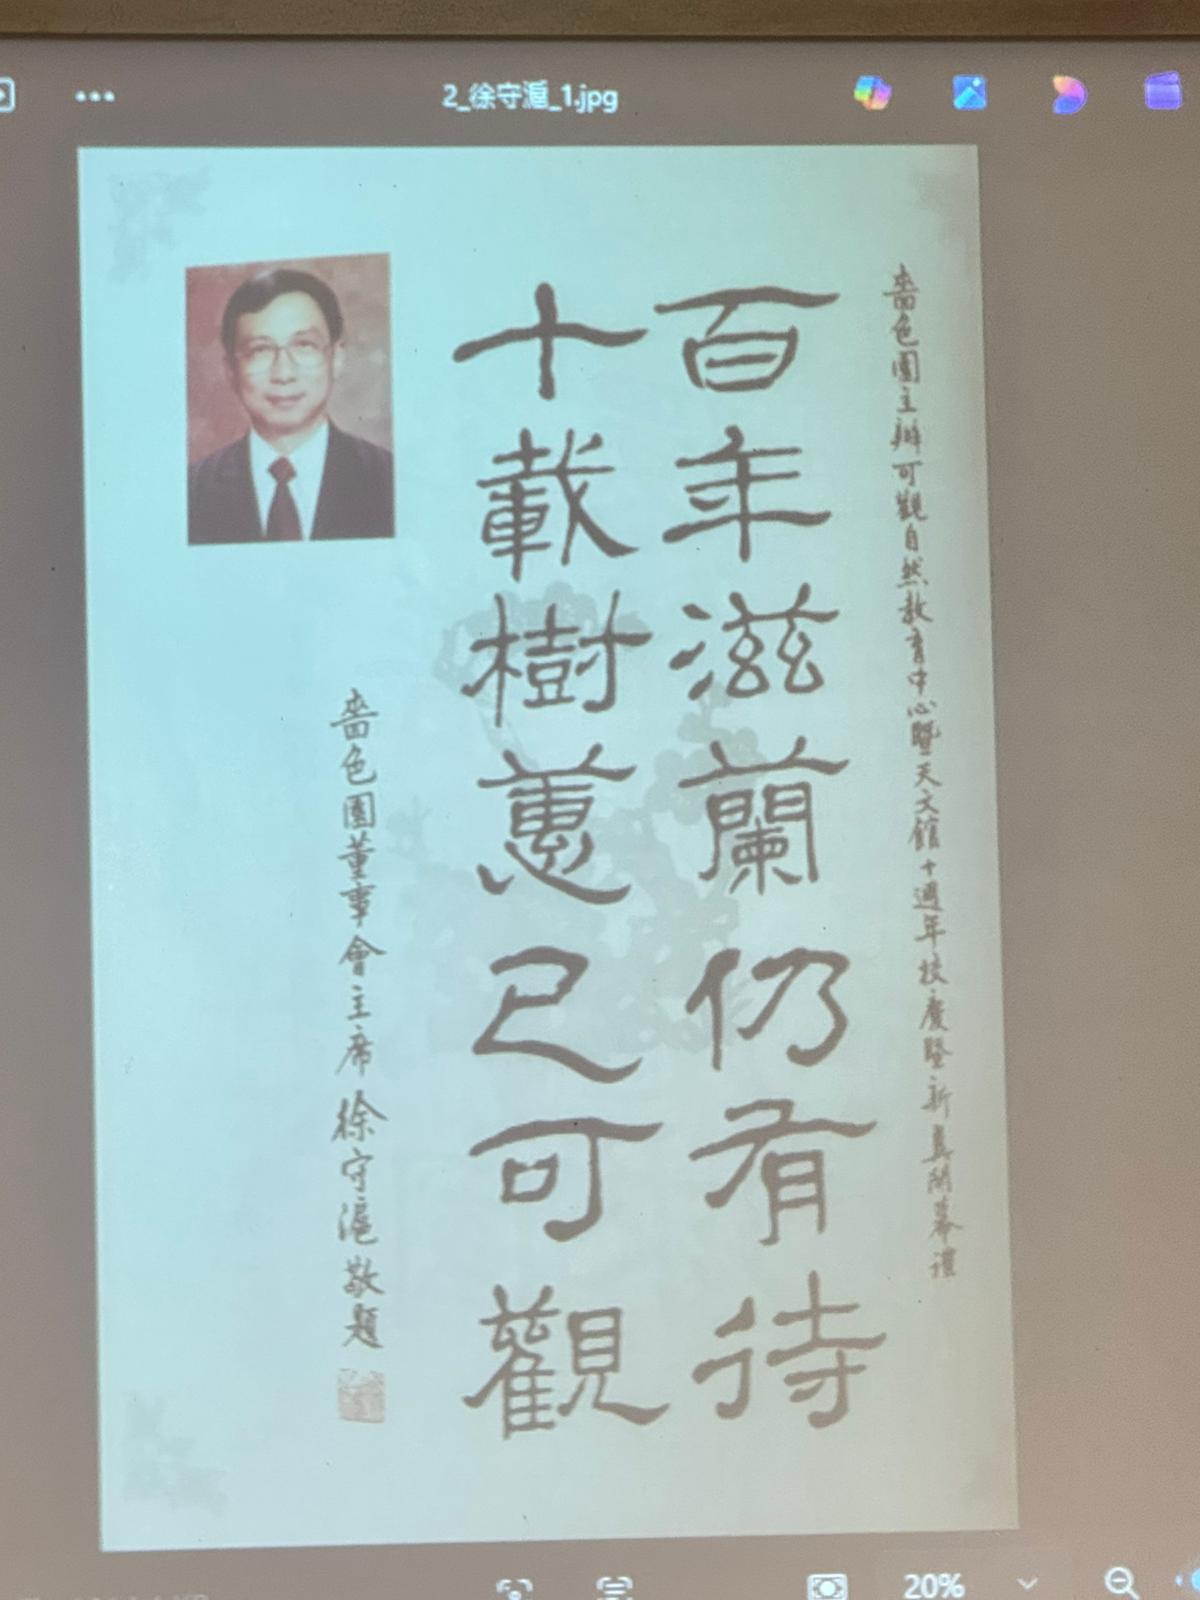 2_徐守滬_1.jpg
嗇色園主辦可觀自然教育中心暨天文館十週年校慶暨新翼開幕禮
百年滋蘭仍有待
十載樹蕙已可觀
嗇色園董事會主席徐守滬敬題
20%